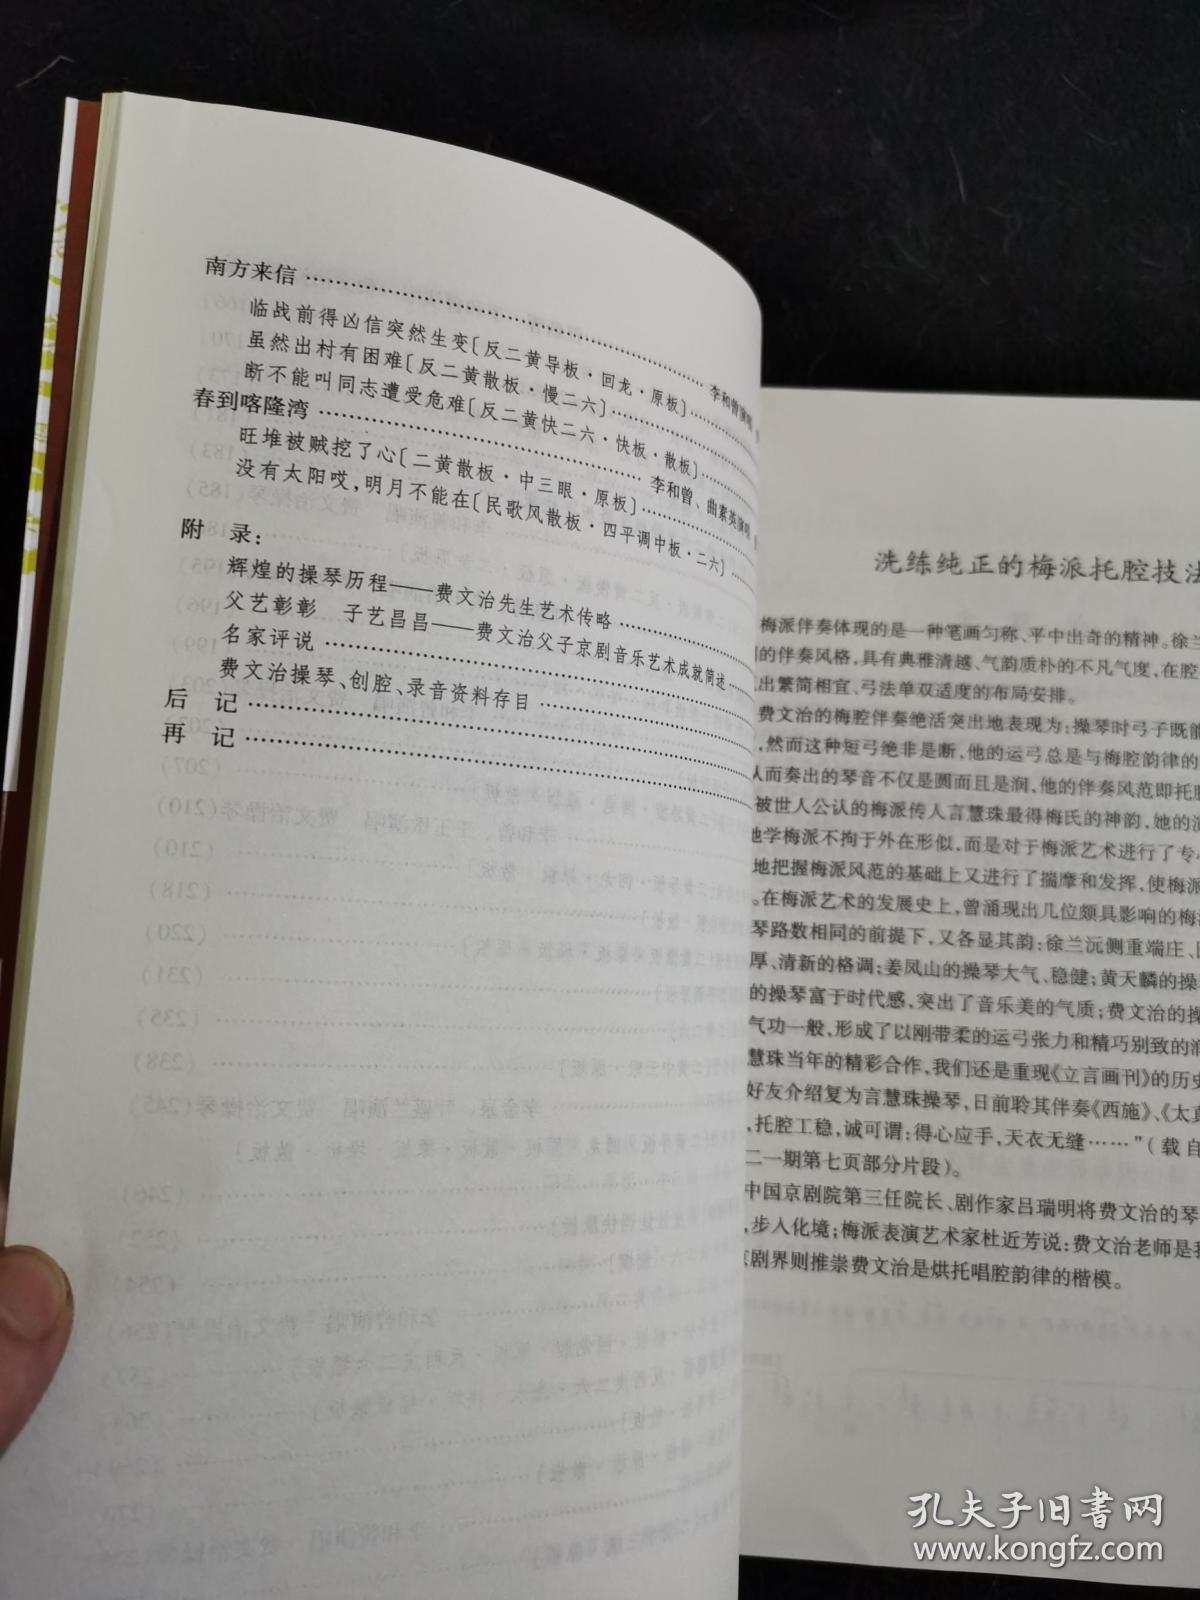 南方来信
李和曾演唱
临战前得凶信突然生变〔反二黄导板·回龙·原板〕
虽然出村有困难〔反二黄散板·慢二六〕
断不能叫同志遭受危难〔反二黄快二六·快板·散板〕
春到喀隆湾
李和曾、曲素英演唱
旺堆被贼挖了心〔二黄散板·中三眼·原板〕
没有太阳哎，明月不能在〔民歌风散板·四平调中板·二六〕
附 录：
辉煌的操琴历程——费文治先生艺术传略
父艺彰彰 子艺昌昌——费文治父子京剧音乐艺术成就简述
名家评说
费文治操琴、创腔、录音资料存目
后 记
再 记
洗练纯正的梅派托腔技法
梅派伴奏体现的是一种笔画匀称、平中出奇的精神。徐兰
的伴奏风格，具有典雅清越、气韵质朴的不凡气度，在腔
出繁简相宜、弓法单双适度的布局安排。
费文治的梅腔伴奏绝活突出地表现为：操琴时弓子既能
，然而这种短弓绝非是断，他的运弓总是与梅腔韵律的
从而奏出的琴音不仅是圆而且是润，他的伴奏风范即托腔
被世人公认的梅派传人言慧珠最得梅氏的神韵，她的演
她学梅派不拘于外在形似，而是对于梅派艺术进行了专
地把握梅派风范的基础上又进行了揣摩和发挥，使梅派
。在梅派艺术的发展史上，曾涌现出几位颇具影响的梅派
琴路数相同的前提下，又各显其韵：徐兰沅侧重端庄、
厚、清新的格调；姜凤山的操琴大气、稳健；黄天麟的操
的操琴富于时代感，突出了音乐美的气质；费文治的操
气功一般，形成了以刚带柔的运弓张力和精巧别致的润
慧珠当年的精彩合作，我们还是重现《立言画刊》的历史
好友介绍复为言慧珠操琴，日前聆其伴奏《西施》、《太真
，托腔工稳，诚可谓：得心应手，天衣无缝……”（载自
二一期第七页部分片段）。
中国京剧院第三任院长、剧作家吕瑞明将费文治的琴
，步入化境；梅派表演艺术家杜近芳说：费文治老师是我
京剧界则推崇费文治是烘托唱腔韵律的楷模。
孔夫子旧书网
www.kongfz.com